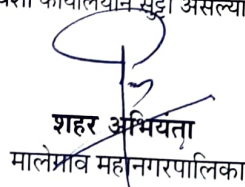 कार्यालयाने सुट्टी असल्या
शहर अभियंता
मालेगाव महानगरपालिका